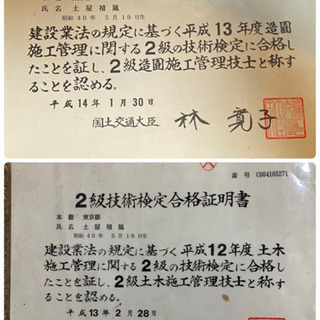 氏名 土屋 嵐
昭和40年 5月19日生
建設業法の規定に基づく平成13年度造園
施工管理に関する2級の技術検定に合格し
たことを証し、2級造園施工管理技士と称す
ることを認める。
平成14年1月30日
国土交通大臣 林 寛子
番号 C004105271
2級技術検定合格証明書
本籍 東京都
氏名 土屋 嵐
昭和40年 5月19日生
建設業法の規定に基づく平成12年度土木
施工管理に関する2級の技術検定に合格し
たことを証し、2級土木施工管理技士と称す
ることを認める。
平成13年2月28日